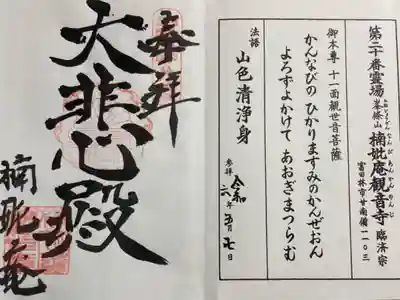 第二十番霊場
峯條山
楠妣庵観音寺
なんぴあんかんのんじ
臨済宗
富田林市甘南備一一〇三
御本尊 十一面観世音菩薩
かんなびの ひかりますみのかんぜおん
よろずよかけて あおぎまつらむ
法語
山色清浄身
参拝 令和六年五月七日
奉拝
大悲殿
楠妣庵